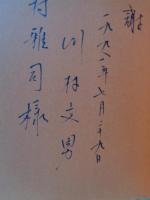 謝
一九九一年七月二十九日
川村文男
村雅司様